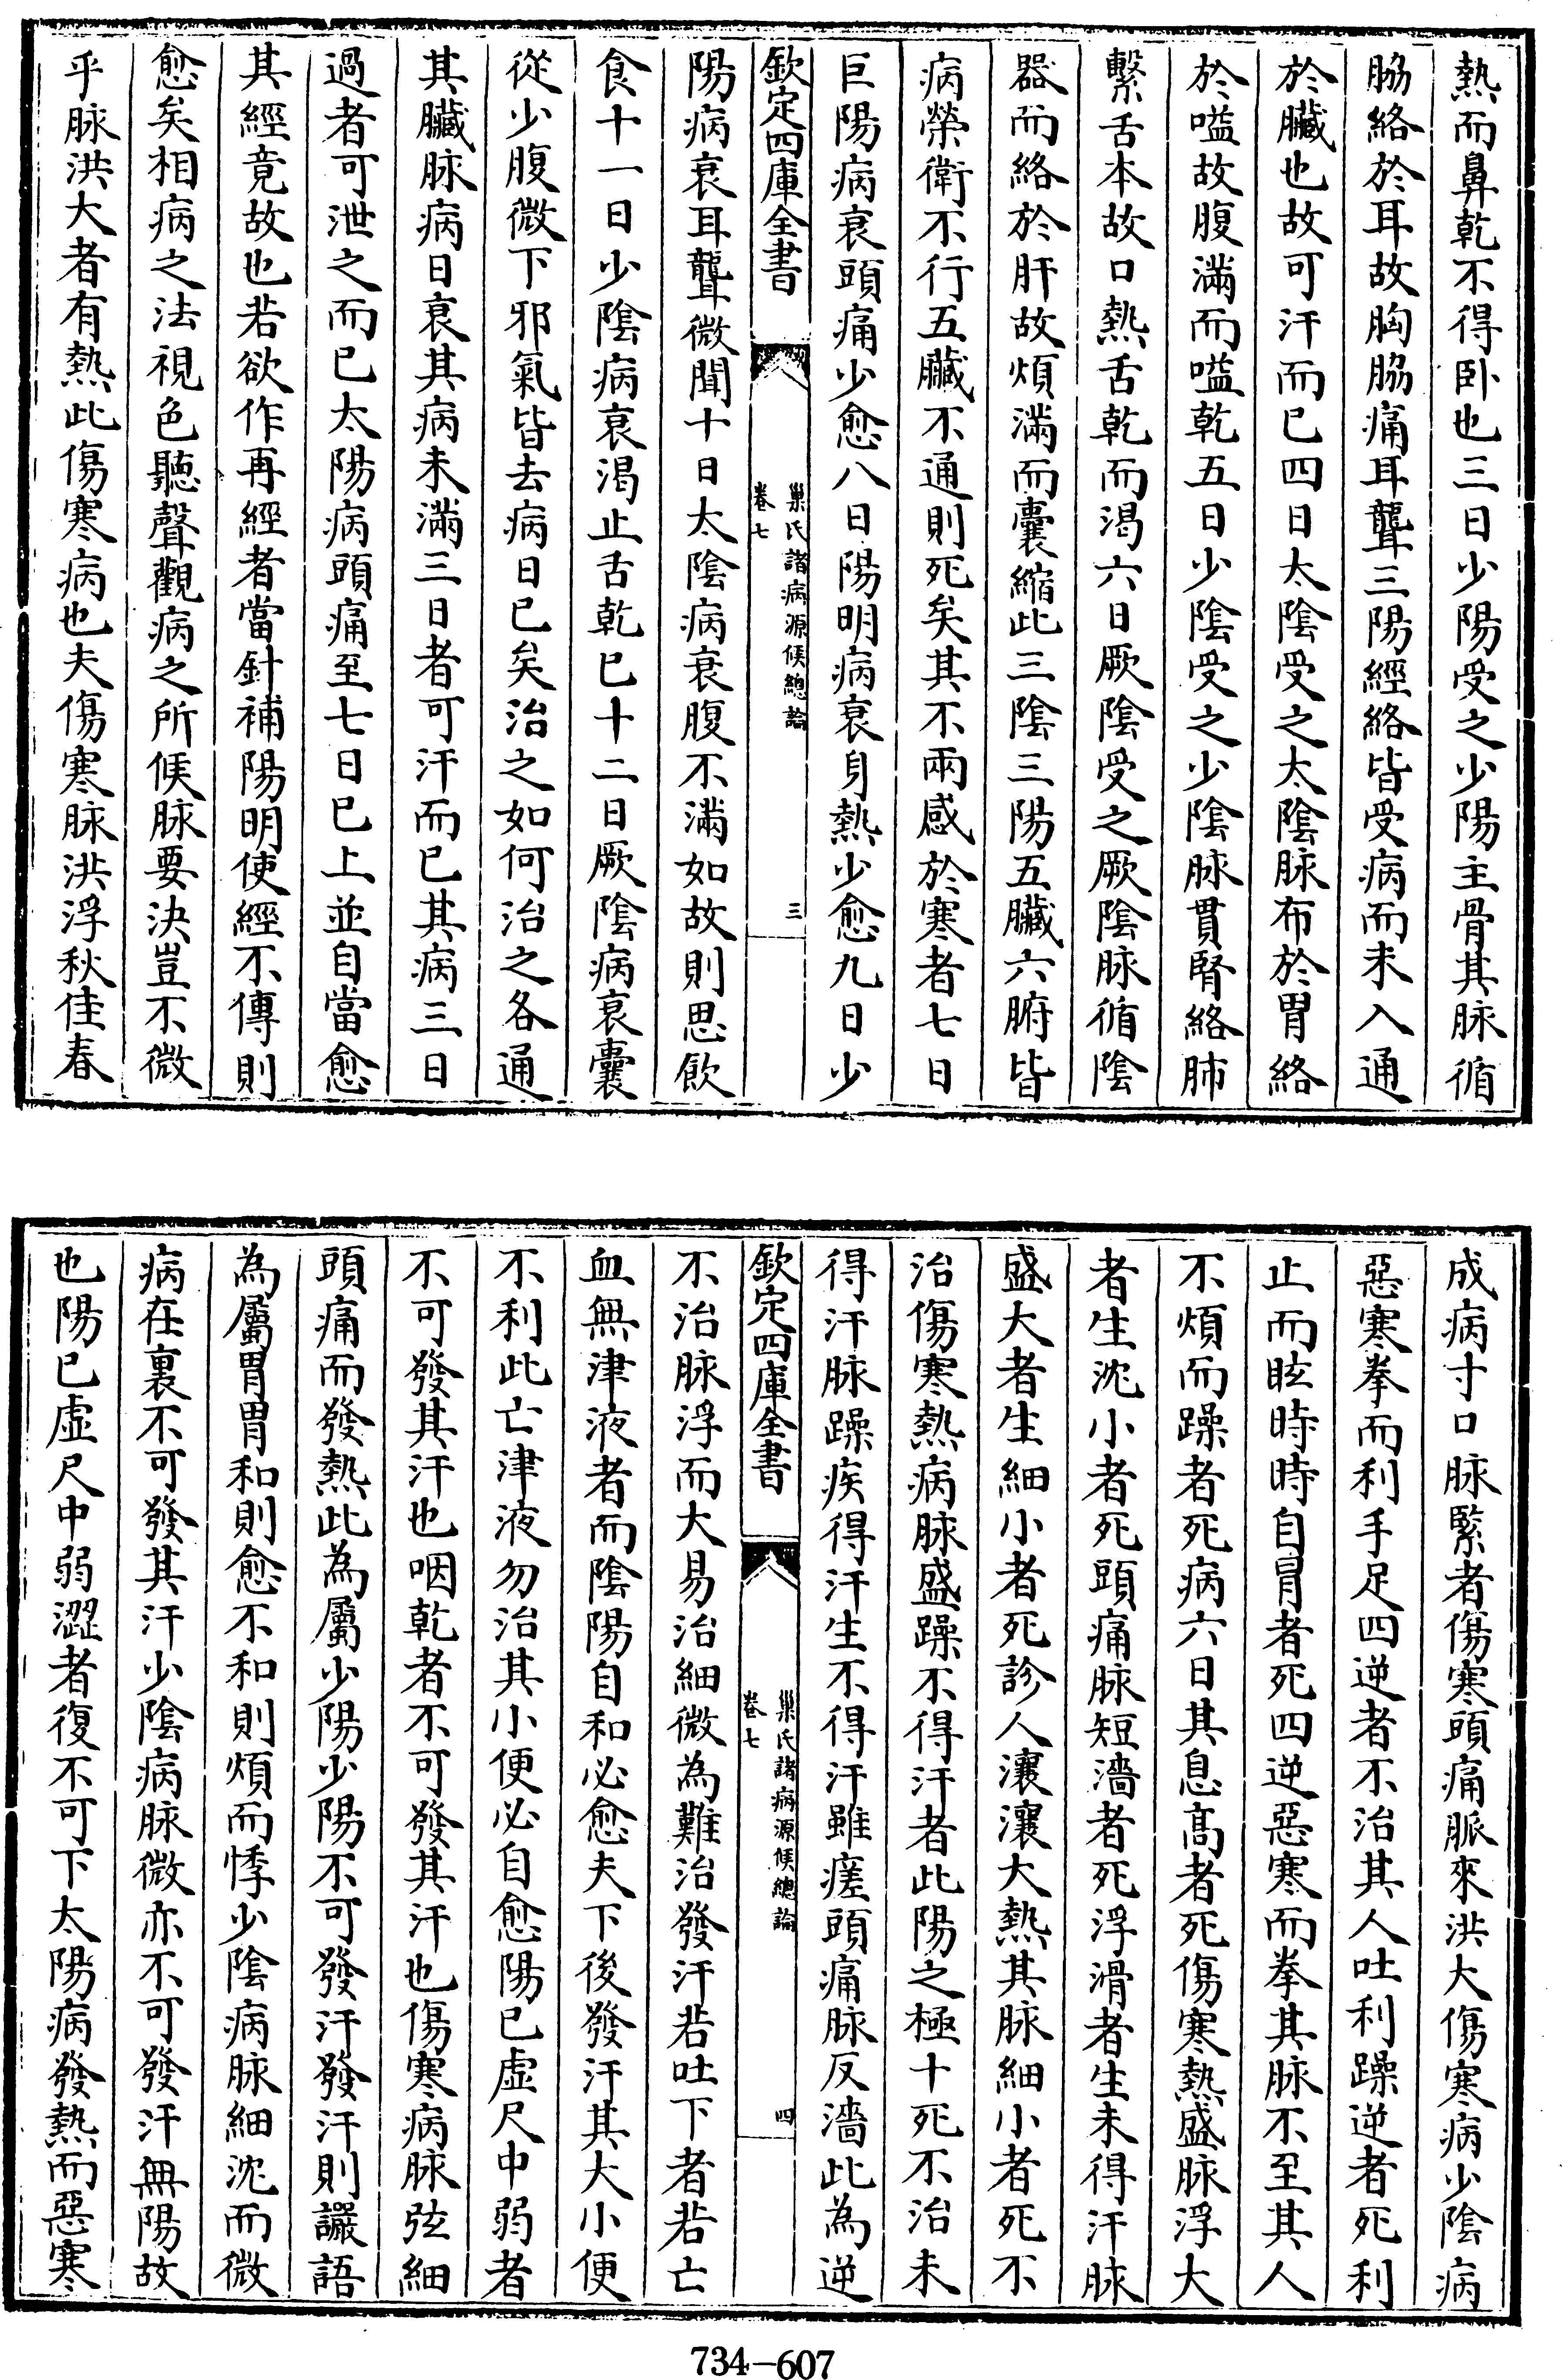 熱而鼻乾不得卧也三日少陽受之少陽主骨其脉循
脇絡於耳故胸脇痛耳聾三陽經絡皆受病而未入通
於臟也故可汗而已四日太陰受之太陰脉布於胃絡
於嗌故腹滿而嗌乾五日少陰受之少陰脉貫腎絡肺
繫舌本故口熱舌乾而渴六日厥陰受之厥陰脉循陰
器而絡於肝故煩滿而囊縮此三陰三陽五臟六腑皆
病榮衛不行五臟不通則死矣其不兩感於寒者七日
巨陽病衰頭痛少愈八日陽明病衰身熱少愈九日少
欽定四庫全書
巢氏諸病源候總論
卷七
三
陽病衰耳聾微聞十日太陰病衰腹不滿如故則思飲
食十一日少陰病衰渴止舌乾已十二日厥陰病衰囊
從少腹微下邪氣皆去病日已矣治之如何治之各通
其臟脉病日衰其病未滿三日者可汗而已其病三日
過者可泄之而已太陽病頭痛至七日已上並自當愈
其經竟故也若欲作再經者當針補陽明使經不傳則
愈矣相病之法視色聽聲觀病之所候脉要決豈不微
乎脉洪大者有熱此傷寒病也夫傷寒脉洪浮秋佳春
成病寸口脉緊者傷寒頭痛脈來洪大傷寒病少陰病
惡寒拳而利手足四逆者不治其人吐利躁逆者死利
止而眩時時自冒者死四逆惡寒而拳其脉不至其人
不煩而躁者死病六日其息高者死傷寒熱盛脉浮大
者生沈小者死頭痛脉短濇者死浮滑者生未得汗脉
盛大者生細小者死診人瀼瀼大熱其脉細小者死不
治傷寒熱病脉盛躁不得汗者此陽之極十死不治未
得汗脉躁疾得汗生不得汗雖瘥頭痛脉反濇此為逆
欽定四庫全書
巢氏諸病源候總論
卷七
四
不治脉浮而大易治細微為難治發汗若吐下者若亡
血無津液者而陰陽自和必愈夫下後發汗其大小便
不利此亡津液勿治其小便必自愈陽已虛尺中弱者
不可發其汗也咽乾者不可發其汗也傷寒病脉弦細
頭痛而發熱此為屬少陽少陽不可發汗發汗則讝語
為屬胃胃和則愈不和則煩而悸少陰病脉細沈而微
病在裏不可發其汗少陰病脉微亦不可發汗無陽故
也陽已虛尺中弱澀者復不可下太陽病發熱而惡寒
734-607